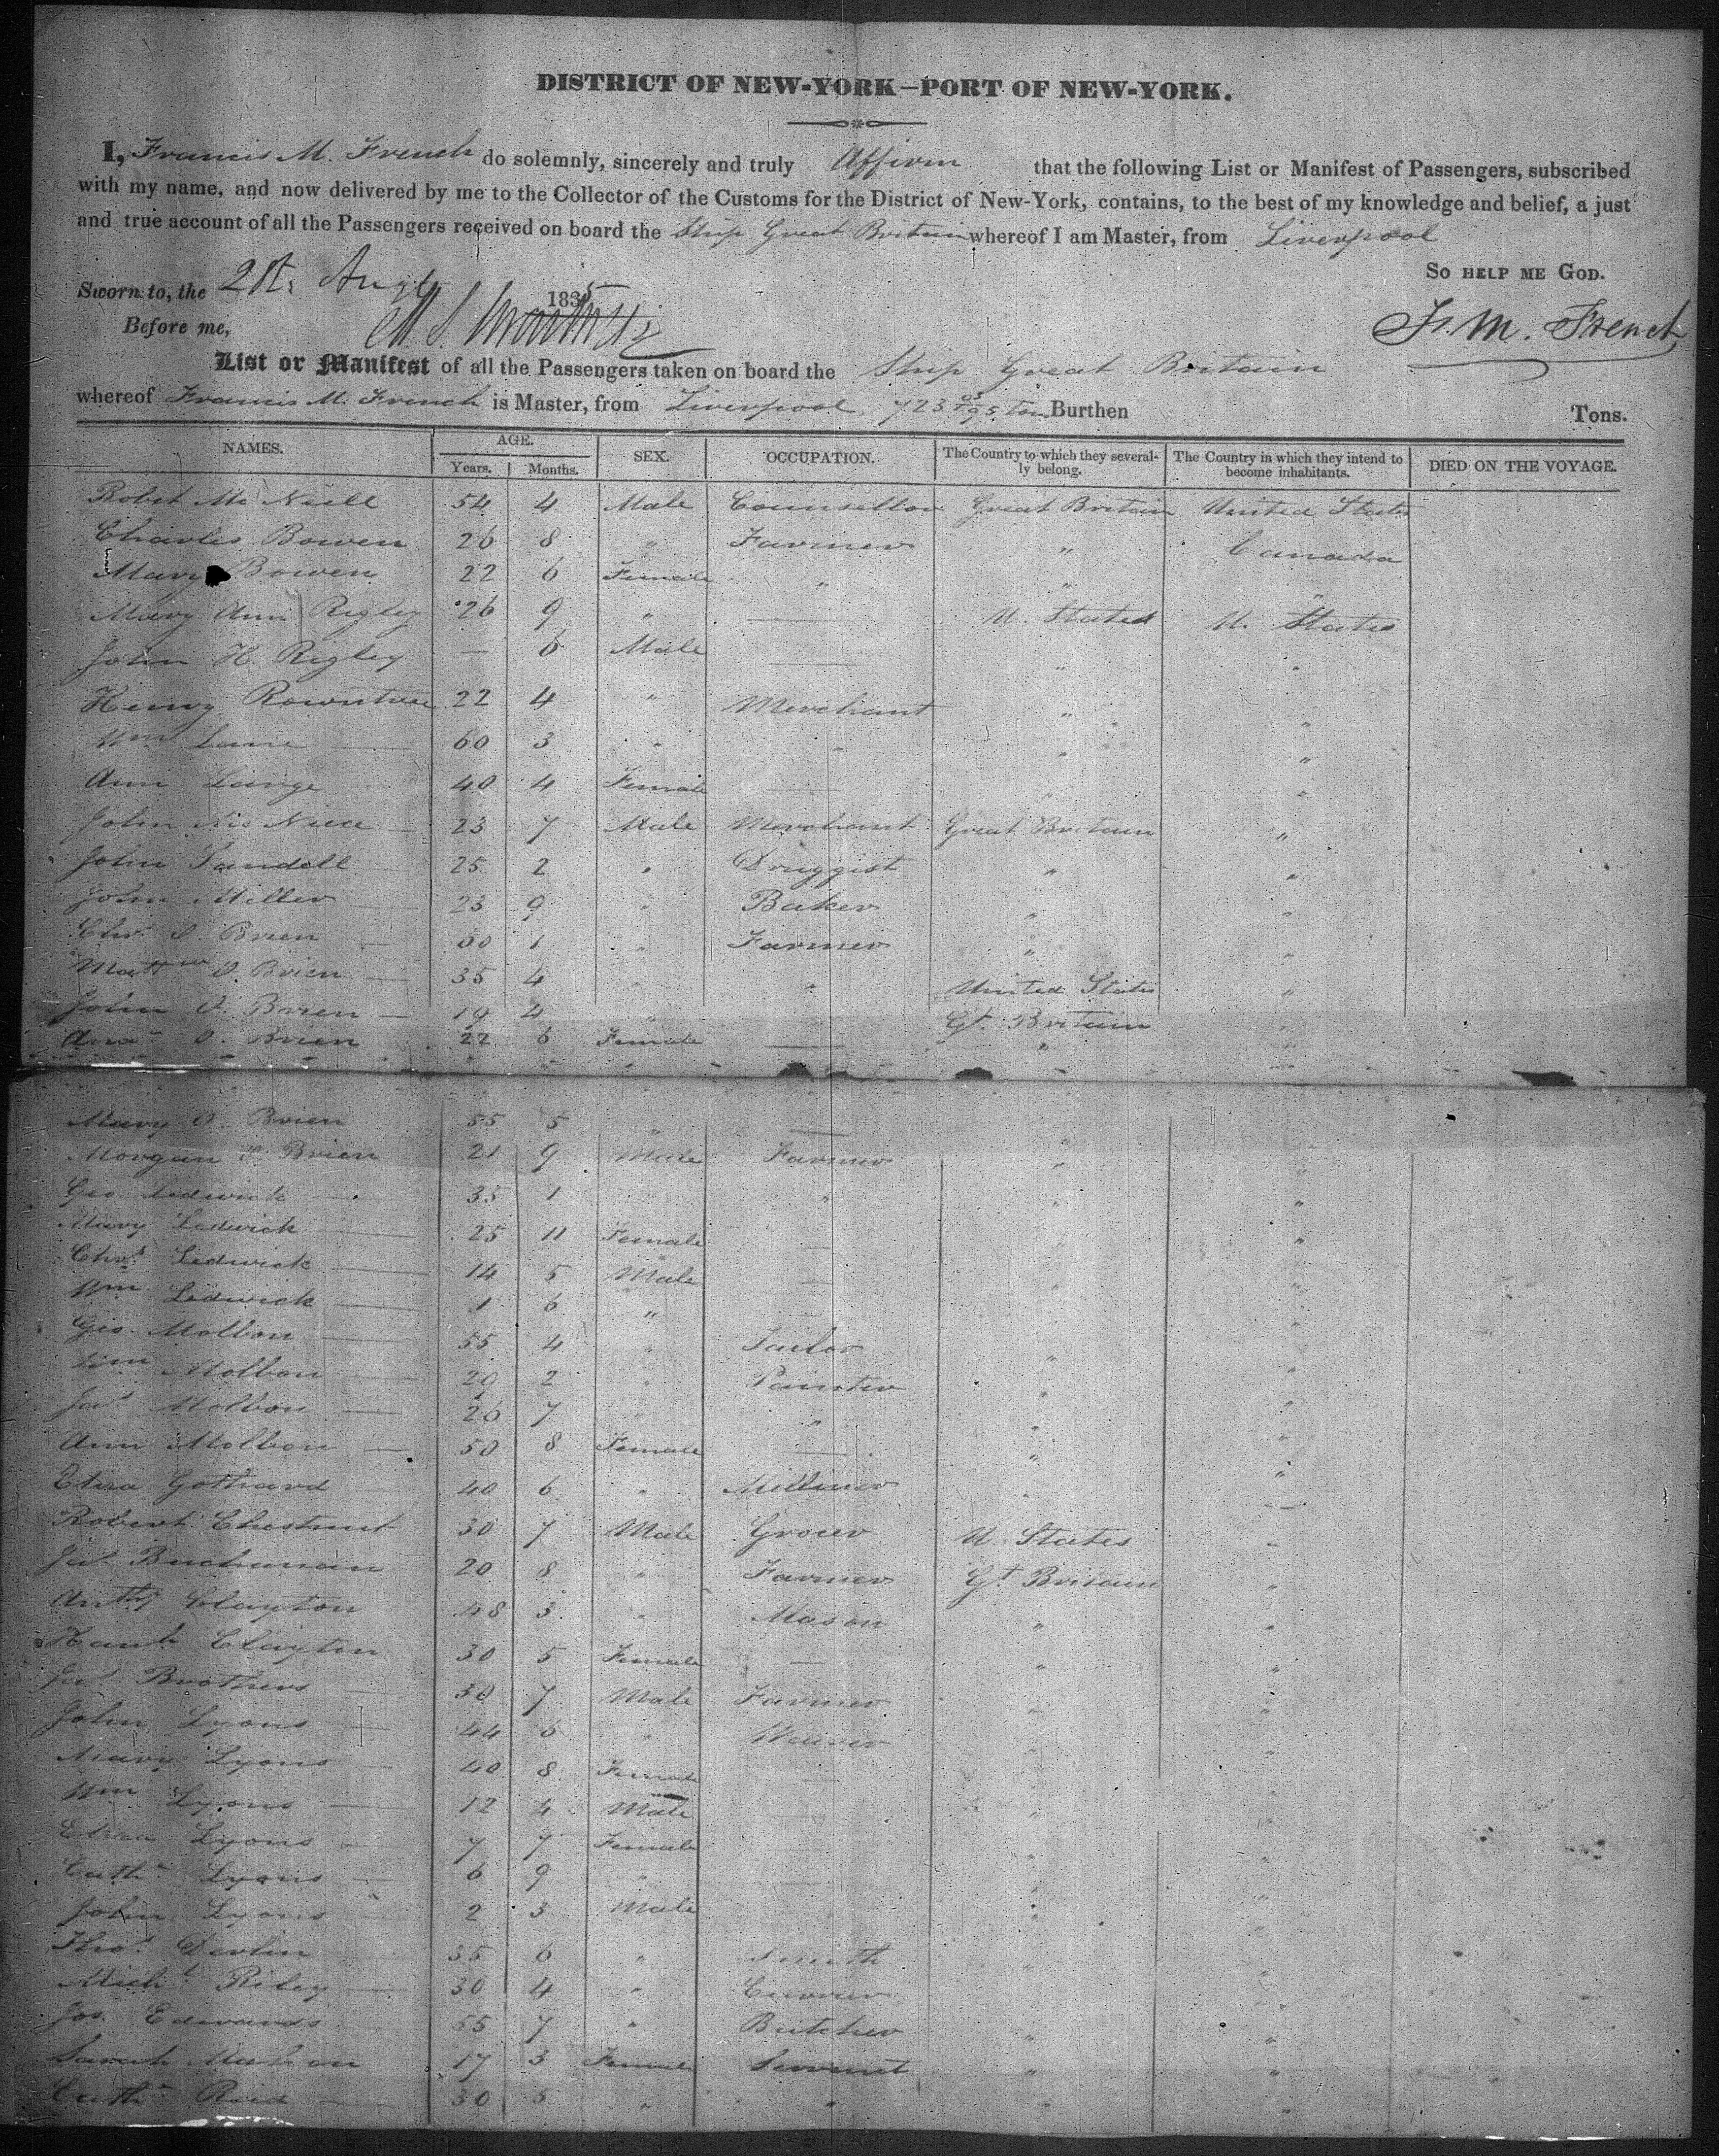 DISTRICT OF NEW-YORK—PORT OF NEW-YORK.
I, Francis M. French do solemnly, sincerely and truly Affirm that the following List or Manifest of Passengers, subscribed
with my name, and now delivered by me to the Collector of the Customs for the District of New-York, contains, to the best of my knowledge and belief, a just
and true account of all the Passengers received on board the Ship Great Britain whereof I am Master, from Liverpool
SO HELP ME GOD.
Sworn to, the 21st. Augt 1835
Before me,
F. M. French
List or Manifest of all the Passengers taken on board the Ship Great Britain
whereof Francis M. French is Master, from Liverpool, 723 95 Tons Burthen Tons.
NAMES. AGE. SEX. OCCUPATION. The Country to which they several- The Country in which they intend to DIED ON THE VOYAGE.
Years. Months. ly belong. become inhabitants.
Robt Mc Neill 54 4 Male Counsellor Great Britain United States
Charles Bowen 26 8 " Farmer " Canada
Mary Bowen 22 6 Female " " "
Mary Ann Rigley 26 9 " — U. States U. States
John H. Rigley — 6 Male — " "
Henry Rowntree 22 4 " Merchant " "
Wm Lane 60 3 " " " "
Ann Lange 40 4 Female — " "
John Mc Niece 23 7 Male Merchant Great Britain "
John Tandell 25 2 " Druggist " "
John Miller 23 9 " Baker " "
Chr. O. Brien 60 1 " Farmer " "
Mattw O. Brien 35 4 " " United States "
John O. Brien 19 4 " Gt. Britain "
O. Brien 22 6 Female — " "
Mary O. Brien 55 5 " —
Morgan O. Brien 21 9 Male Farmer " "
Geo Ledwick 35 1 " " "
Mary Ledwick 25 11 Female — " "
Chrs. Ledwick 14 5 Male — " "
Wm Ledwick 1 6 " — "
Geo. Molbon 55 4 " Tailor " "
Wm Molbon 29 2 " Painter " "
Jas Molbon 26 7 " " " "
Ann Molbon 50 8 Female — " "
Eliza Gothard 40 6 " Milliner " —
Robert Chestnut 30 7 Male Grocer U. States "
Jas Buchanan 20 8 " Farmer Gt. Britain "
Anthy Clayton 48 3 " Mason " "
Hanh Clayton 30 5 Female — " "
Jas Brothers 30 7 Male Farmer " "
John Lyons 44 6 " Weaver "
Mary Lyons 40 8 Female — " "
Wm Lyons 12 4 Male — " "
Eliza Lyons 7 7 Female " "
Cathe Lyons 6 9 " " "
John Lyons 2 3 Male " "
Thos. Devlin 35 6 " Smith " "
Michl Riley 30 4 " Currier " "
Jos. Edwards 55 7 " Butcher " "
Sarah 17 3 Female Servant " "
Cathe Reid 30 5 " " " "